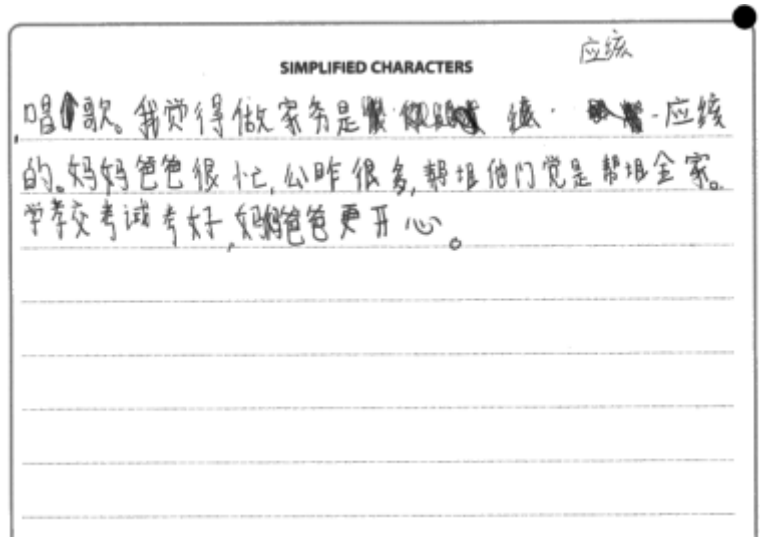 应该
SIMPLIFIED CHARACTERS
唱歌。我觉得做家务是 应该
的。妈妈爸爸很忙,公昨很多,帮他们党是帮全家。
学孝交考试考好,妈妈爸爸更开心。